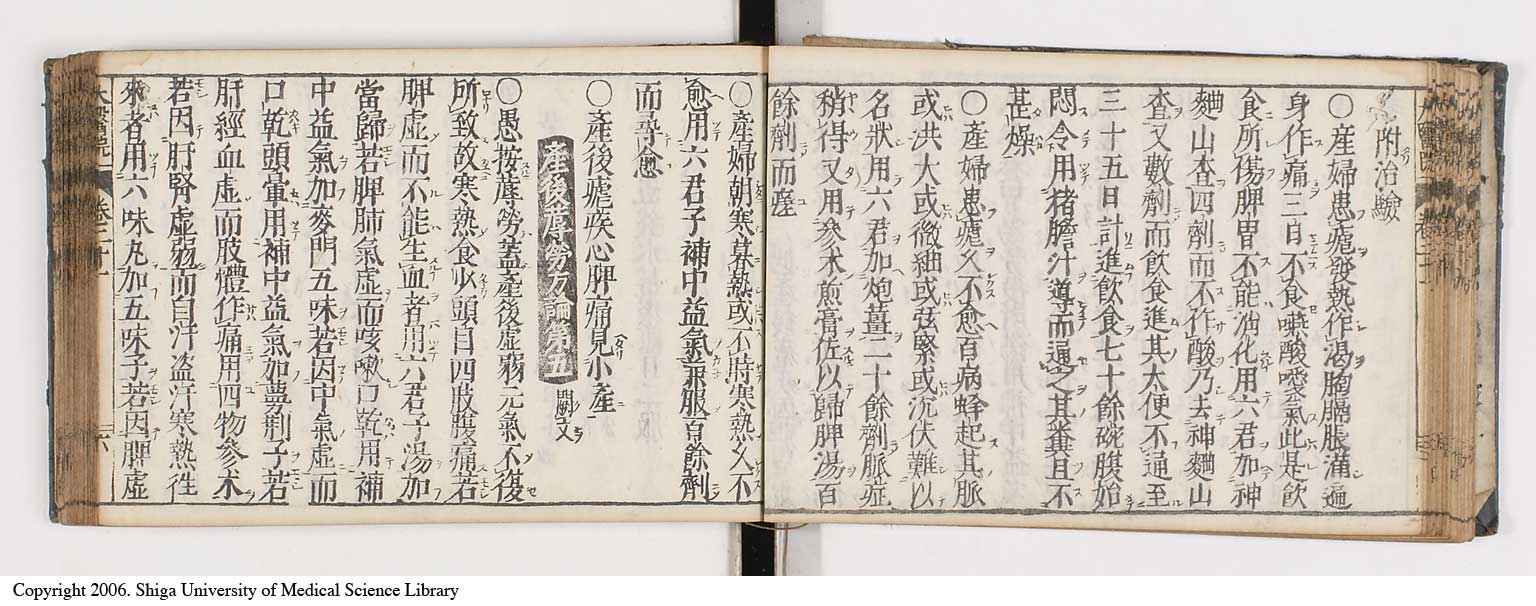 附治驗
○産婦患瘧發熱作渴胸膈脹滿遍
身作痛三日不食嚥酸噯氣此是飲
食所傷脾胃不能消化用六君加神
麯山査四劑而不作酸乃去神麯山
査又數劑而飲食進其大便不通至
三十五日計進飲食七十餘碗腹始
悶令用猪膽汁導而通之其糞且不
甚燥
○産婦患瘧久不愈百病蜂起其脈
或洪大或微細或弦緊或沉伏難以
名狀用六君加炮薑二十餘劑脈症
稍得又用參朮煎膏佐以歸脾湯百
餘劑而瘥
○産婦朝寒暮熱或不時寒熱久不
愈用六君子補中益氣兼服百餘劑
而尋愈
○産後瘧疾心脾痛見小産
産後蓐勞方論第五 門闕文
○愚按蓐勞蓋産後虚弱元氣不復
所致故寒熱食少頭目四肢腹痛若
脾虚而不能生血者用六君子湯加
當歸若脾肺氣虚而咳嗽口乾用補
中益氣加麥門五味若因中氣虚而
口乾頭暈用補中益氣加蔓荆子若
肝經血虚而肢體作痛用四物參朮
若因肝腎虚弱而自汗盗汗寒熱徃
來者用六味丸加五味子若因脾虚
卷二十一
六
Copyright 2006. Shiga University of Medical Science Library